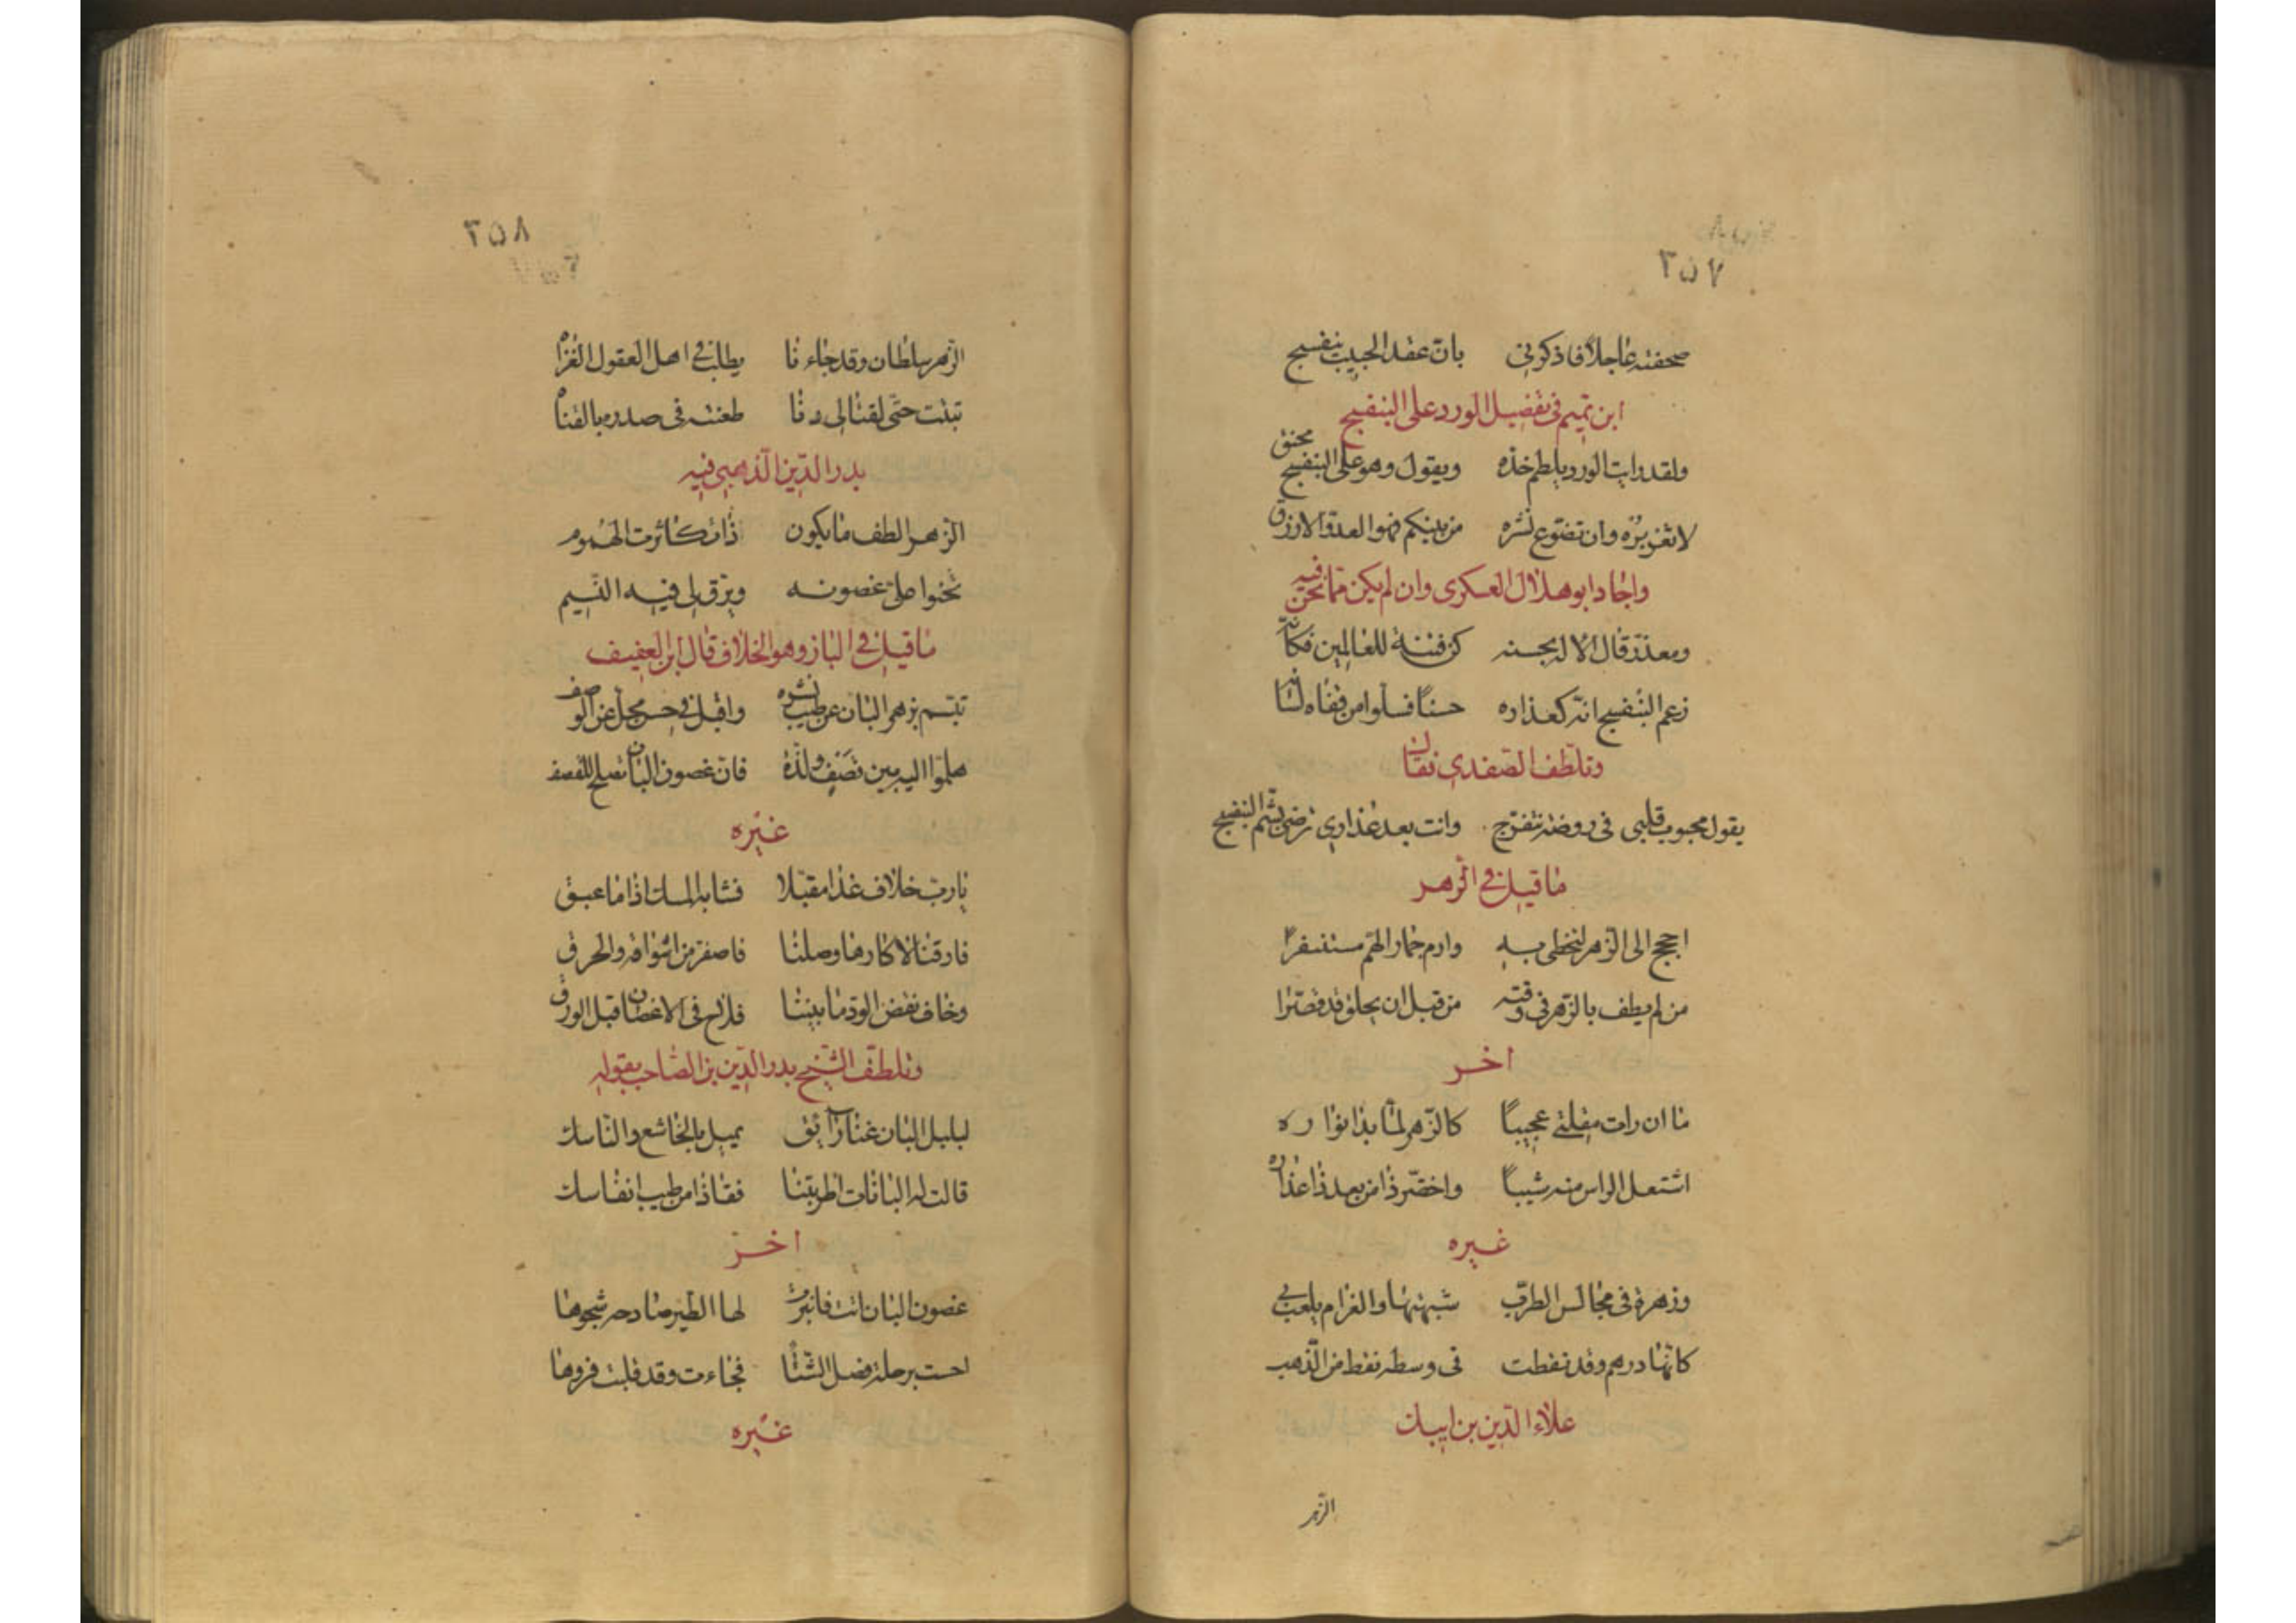 ٢٥٧
صحفته عاجلا فاذكرني بان عقد الحبيب بنفسج
ابن تميم في تفضيل الورد على البنفسج
ولقد رايت الورد يلطم خده ويقول وهو على البنفسج محنق
لا تغزبره وان تضوع نشره من بينكم فهو العدو الازرق
واجاد ابو هلال العسكري وان لم يكن مما نحن فيه
ومعذر قال الاله لحسنه كن فتنة للعالمين فكانه
زعم البنفسج انه كعذاره حسنا فسلوا من قفاه لسانه
وتلطف الصفدي فقال
يقول محبوب قلبي في روضة تتفرج وانت بعد عذاري ترضى بشم البنفسج
ما قيل في الزهر
احجج الى الزهر لتحظى به وارم جمار الهم مستنفرا
من لم يطف بالزهر في وقته من قبل ان يحلق قد قصرا
اخر
ما ان رات مقلتي عجيبا كالزهر لما بدا نواره
اشتعل الراس منه شيبا واخضر ذا من بعد ذا عذاره
غيره
وزهرة في مجالس الطرب شبهتها والغرام يلعب بي
كانها درهم وقد نقطت في وسطه نقط من الذهب
علاء الدين بن ايبك
الزهر
٢٥٨
الزهر سلطان وقد جاءنا يطلب في اهل العقول الغزاه
تبنت حتى لقنا الى دنا طعنته في صدره بالقناه
بدر الدين الذهبي فيه
الزهر الطف ما يكون ذا تكاثرت الهموم
تحنوا على غصونه ويرق لي فيه النسيم
ما قيل في البان وهو الخلاف قال ابن العفيف
تبسم زهر البان عن طيب نشره واقبل في حسن يجل عن الوصف
هلموا اليه بين قصف ولذة فان غصون البان تصلح للقصف
غيره
يارب خلاف غدا مقبلا فشابه المسك اذا ما عبق
فارقنا لا كارها وصلنا فاصفر من اشواقه والحرق
وخاف نقض الود ما بيننا فلاح في الاغصان قبل الورق
وتلطف الشيخ بدر الدين بن الصاحب بقوله
لبلبل البان غنا رايق يميل بالخاشع والناسك
قالت له البانات اطربتنا فقال ذا من طيب انفاسك
اخر
غصون البان اتت فانبرت لها الطير صادحة شجوها
احست برحلة فصل الشتا فجاءت وقد قلبت فروها
غيره